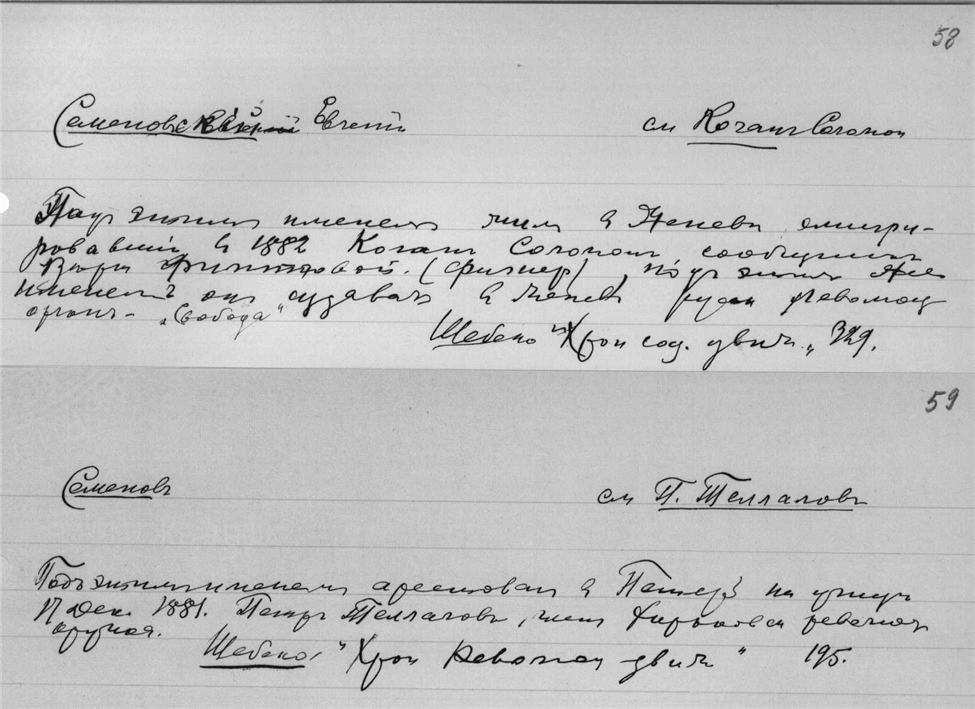 58
Семеновъ Евгеній см Коганъ Соломон
Подъ этимъ именемъ жилъ в Женеве эмигри-
ровавшій в 1882 Коганъ Соломон, сообщник
Веры Филипповой. (Фигнер), подъ этим же
именемъ он издавалъ в Женеве революц
орган- „Свобода"
Шебеко „Хрон соц. движ.„ 329.
59
Семеновъ см П. Теллаловъ
Подъ этимъ именем арестован в Петер на улице
17 дек. 1881. Петръ Теллаловъ, член Харьковск револю
кружка.
Шебеко, " Хрон Револю движ " 195.